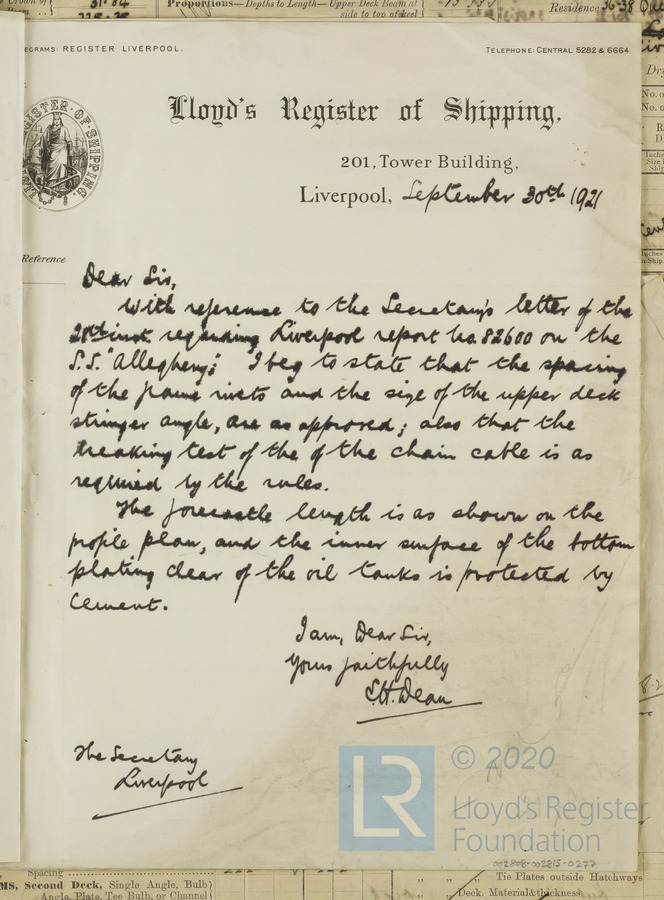 31·84
Proportions—Depths to Length—Upper Deck Beam at
side to top of keel
Residence 36-38
EGRAMS: REGISTER LIVERPOOL.
TELEPHONE: CENTRAL 5282 & 6664.
Lloyd's Register of Shipping,
201, Tower Building,
Liverpool, September 30th 1921
REGISTER OF SHIPPING
Reference
Dear Sir,
With reference to the Secretary's letter of the
20th inst. regarding Liverpool report No. 82600 on the
S.S. "Allegheny": I beg to state that the spacing
of the frame rivets and the size of the upper deck
stringer angle, are as approved; also that the
breaking test of the of the chain cable is as
required by the rules.
The forecastle length is as shown on the
profile plan, and the inner surface of the bottom
plating clear of the oil tanks is protected by
cement.
I am, Dear Sir,
Yours faithfully
S.H. Dean
The Secretary
Liverpool
LR
© 2020
Lloyd's Register
Foundation
002808-002815-0277
Spacing
MS, Second Deck, Single Angle, Bulb
Angle, Plate, Tee Bulb, or Channel
Tie Plates outside Hatchways
Deck. Material & thickness